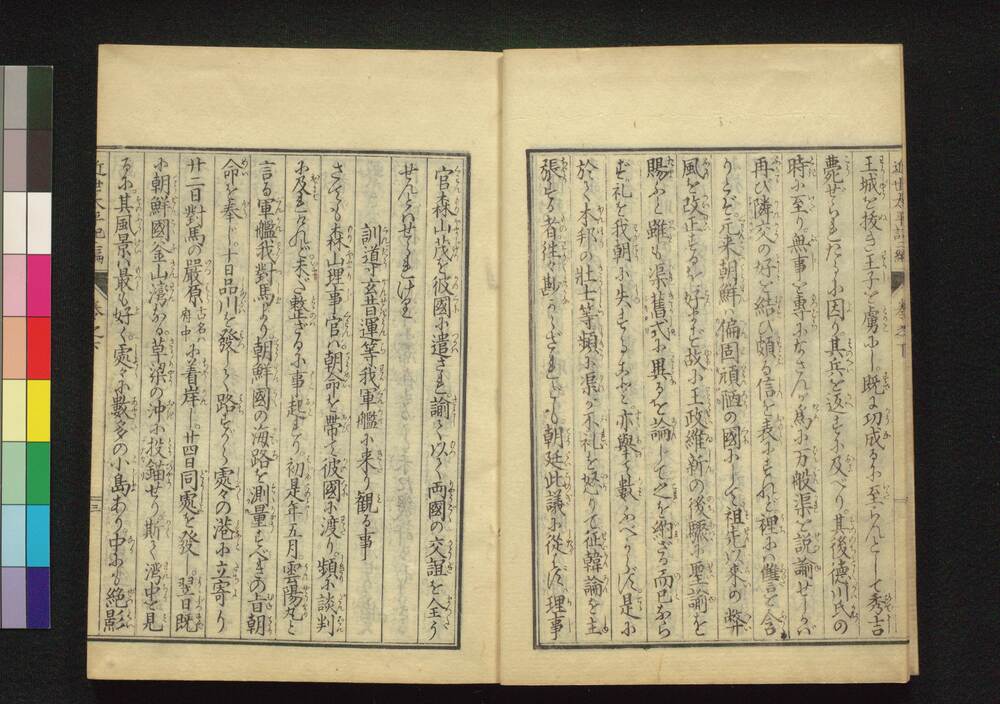 近世太平記二編 巻之下
王城を抜き王子を虜にし既に功成るに至らんとして秀吉
薨せられたるに因り其兵を返すに及べり其後徳川氏の
時に至り無事を専になさんが爲に万般渠を説諭せしかバ
再び隣交の好を結び頗る信を表にすれど裡にハ讐を含
りされど元来朝鮮ハ偏固頑陋の國にして祖先以来の弊
風を改正するを好まず故に王政維新の後驟に聖諭を
賜ふと雖も渠舊式に異るを論じて之を納ざる而已なら
ず礼を我朝に失することも亦舉て數ふべからず是に
於て本邦の壮士等頻に渠が不礼を怒りて征韓論を主
張する者往々尠からざれども朝廷此議に從ハず理事
官森山茂を彼國に遣され諭て以て両國の交誼を全う
せんとハせられけれ
訓導玄昔運等我軍艦に来り観る事
さても森山理事官ハ朝命を帶て彼國に渡り頻に談判
に及ばれけれバ未だ整ざるに事起れり初是年五月雲揚丸と
言る軍艦我對馬より朝鮮國の海路を測量すべきの旨朝
命を奉じ十日品川を發して路すがら處々の港に立寄り
廿二日對馬の嚴原古名ハ府中に着岸し廿四日同處を發 翌日既
に朝鮮國釜山灣なる草梁の沖に投錨せり斯て湾中を見
るに其風景ハ最も好く處々に數多の小島あり中にも絶影
近世太平記二編 巻之下 三